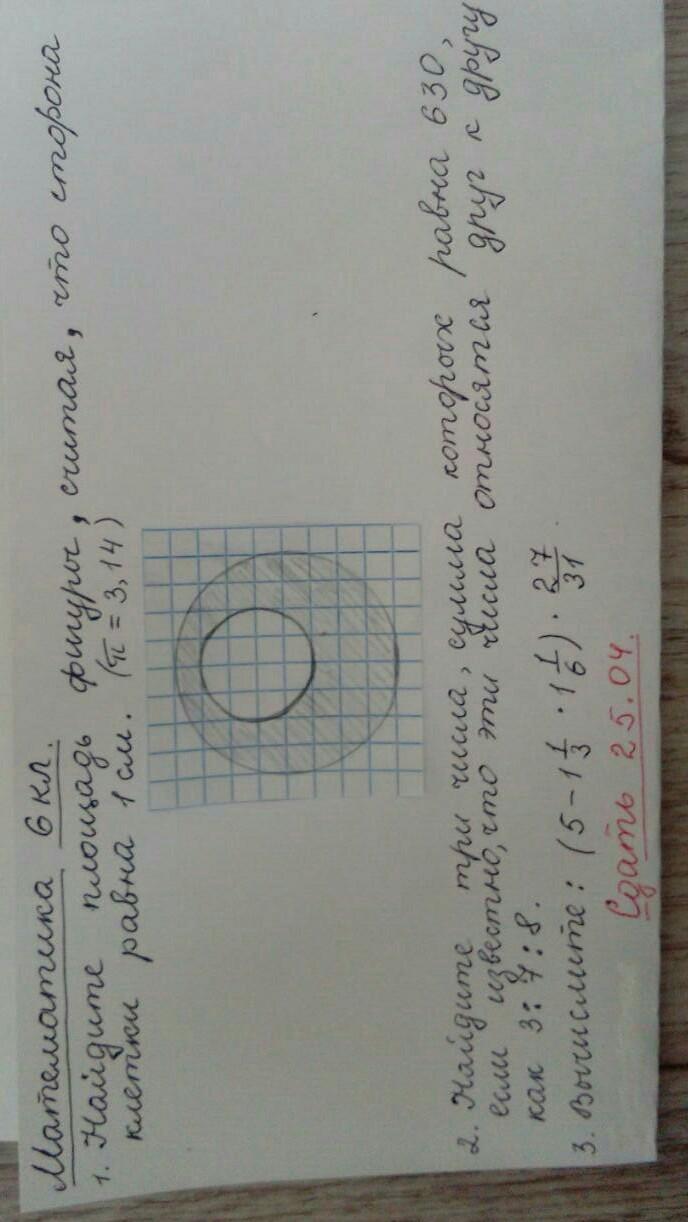 Математика 6 кл.
1. Найдите площадь фигуры, считая, что сторона
клетки равна 1 см. (π = 3,14)
2. Найдите три числа, сумма которых равна 630,
если известно, что эти числа относятся друг к другу
как 3 : 7 : 8.
3. Вычислите: (5 - 1 1/3 · 1 1/6) · 2 7/31.
Сдать 25.04.